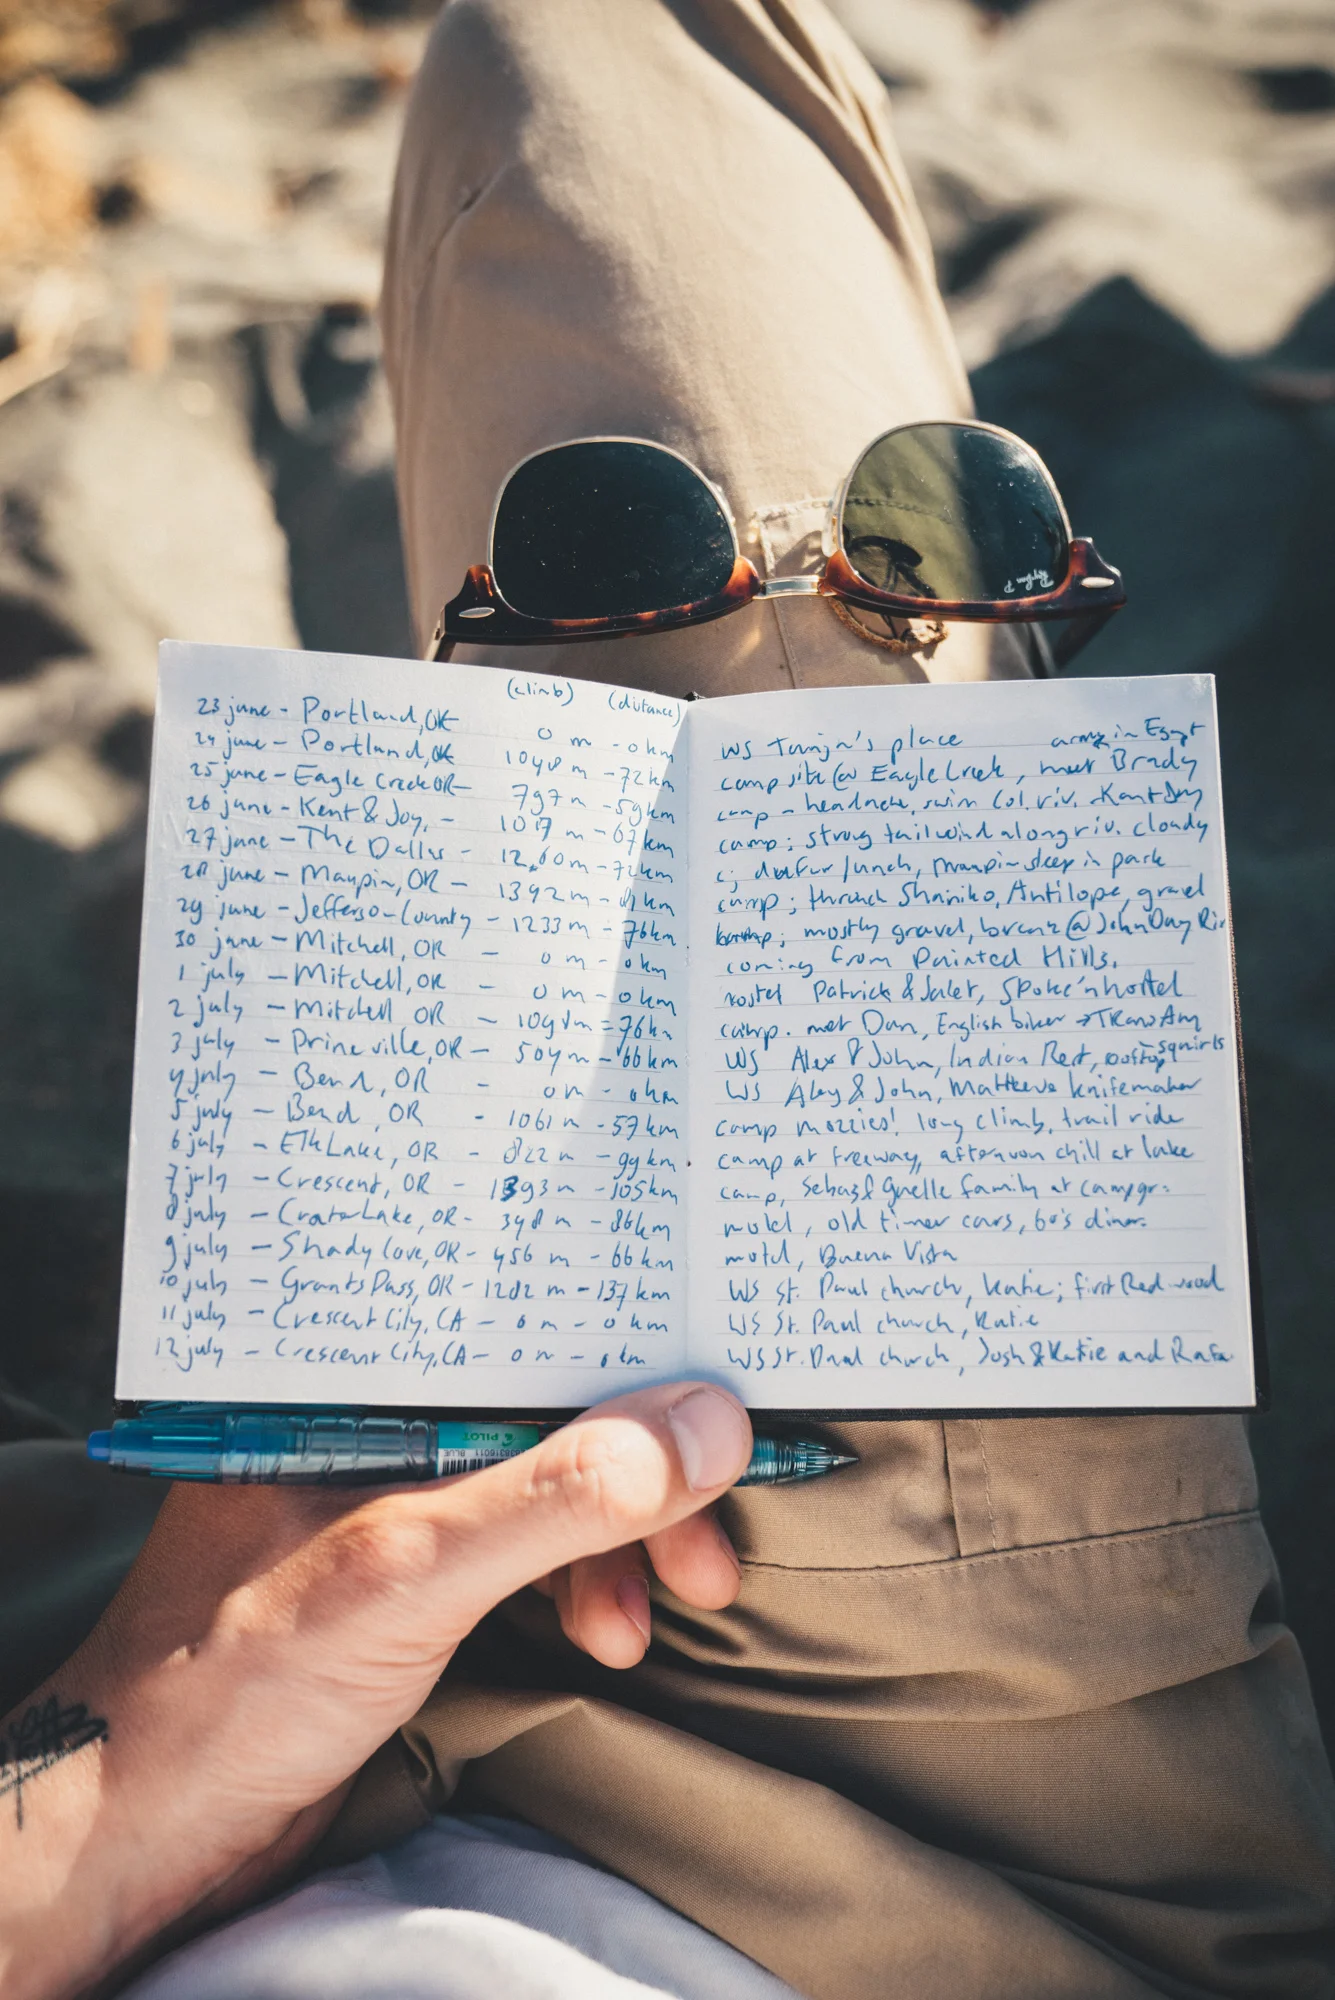 (climb) (distance)
23 june - Portland, OR 0 m - 0 km
24 june - Portland, OR 1048 m - 72 km
25 june - Eagle Creek OR - 797 m - 59 km
26 june - Kent & Joy, - 1017 m - 67 km
27 june - The Dalles - 1260 m - 72 km
28 june - Maupin, OR - 1392 m - 81 km
29 june - Jefferson County - 1233 m - 76 km
30 june - Mitchell, OR - 0 m - 0 km
1 july - Mitchell, OR - 0 m - 0 km
2 july - Mitchell OR - 1098 m = 76 km
3 july - Prineville, OR - 504 m - 66 km
4 july - Bend, OR - 0 m - 0 km
5 july - Bend, OR - 1061 m - 57 km
6 july - Elk Lake, OR - 822 m - 99 km
7 july - Crescent, OR - 1393 m - 105 km
8 july - Crater Lake, OR - 348 m - 86 km
9 july - Shady Cove, OR - 456 m - 66 km
10 july - Grants Pass, OR - 1282 m - 137 km
11 july - Crescent City, CA - 0 m - 0 km
12 july - Crescent City, CA - 0 m - 0 km
WS place army in Egypt
campsite @ Eagle Creek, meet Brady
camp - headache, swim Col. riv. Kent & Joy
camp; strong tailwind along riv. cloudy
c; dufur lunch, maupin sleep in park
camp; through Shaniko, Antilope, gravel
mostly gravel, @ John Day Riv
coming from Painted Hills.
hostel Patrick & Jalet, Spoke'n hostel
camp. met Dan, English biker → TransAm
WS Alex & John, Indian Rest, rooftop squirls
WS Alex & John, Mattheve knifemaker
camp mozzies! long climb, trail ride
camp at freeway, afternoon chill at lake
camp, Sebas & Gaelle family at campgr.
motel, old timer cars, 60's diner.
motel, Buena Vista
WS St. Paul church, Katie; first Redwood
WS St. Paul church, Katie
WS St. Paul church, Josh & Katie and Rafa
PILOT
BLUE